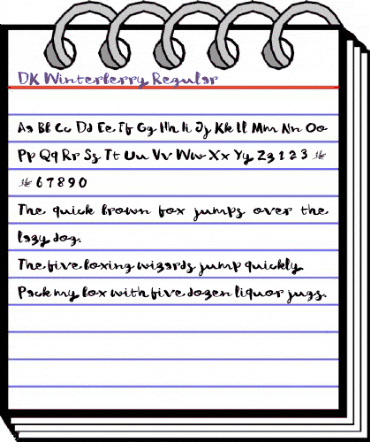 DK Winterberry Regular
Aa Bb Cc Dd Ee Ff Gg Hh Ii Jj Kk Ll Mm Nn Oo
Pp Qq Rr Ss Tt Uu Vv Ww Xx Yy Zz 1 2 3
6 7 8 9 0
The quick brown fox jumps over the
lazy dog.
The five boxing wizards jump quickly.
Pack my box with five dozen liquor jugs.